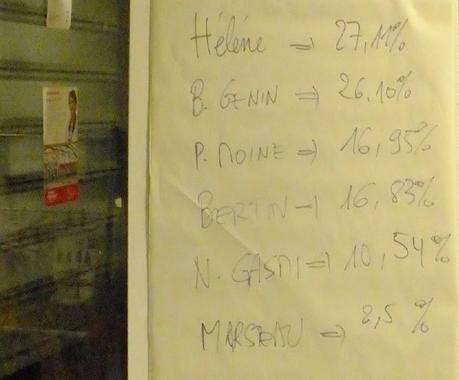 Hélène => 27,11%
B. GENIN => 26,10%
P. MOINE => 16,95%
BERTIN -| 16,83%
N. GASMI => 10,54%
MARSEAU => 2,5 %